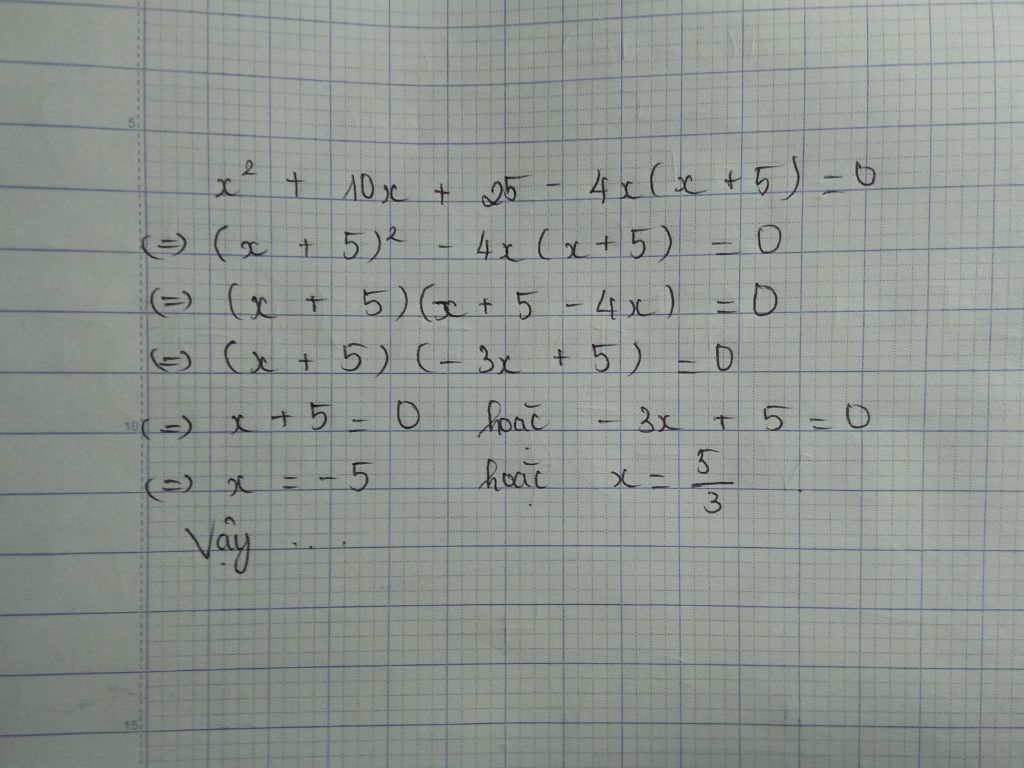 5
x² + 10x + 25 - 4x(x + 5) = 0
(=) (x + 5)² - 4x(x + 5) = 0
(=) (x + 5)(x + 5 - 4x) = 0
(=) (x + 5)(-3x + 5) = 0
10 (=) x + 5 = 0 hoặc -3x + 5 = 0
(=) x = -5 hoặc x = 5/3
Vậy ....
15